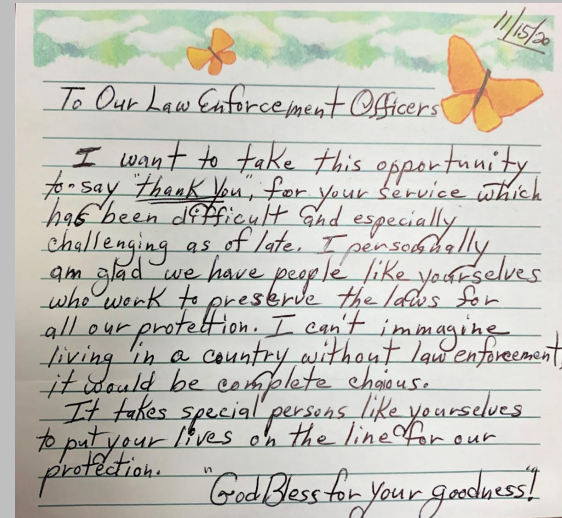 11/15/20
To Our Law Enforcement Officers
I want to take this opportunity
to say "thank you", for your service which
has been difficult and especially
challenging as of late. I personally
am glad we have people like yourselves
who work to preserve the laws for
all our protection. I can't immagine
living in a country without law enforcement,
it would be complete chaious.
It takes special persons like yourselves
to put your lives on the line for our
protection.
"God Bless for your goodness!"